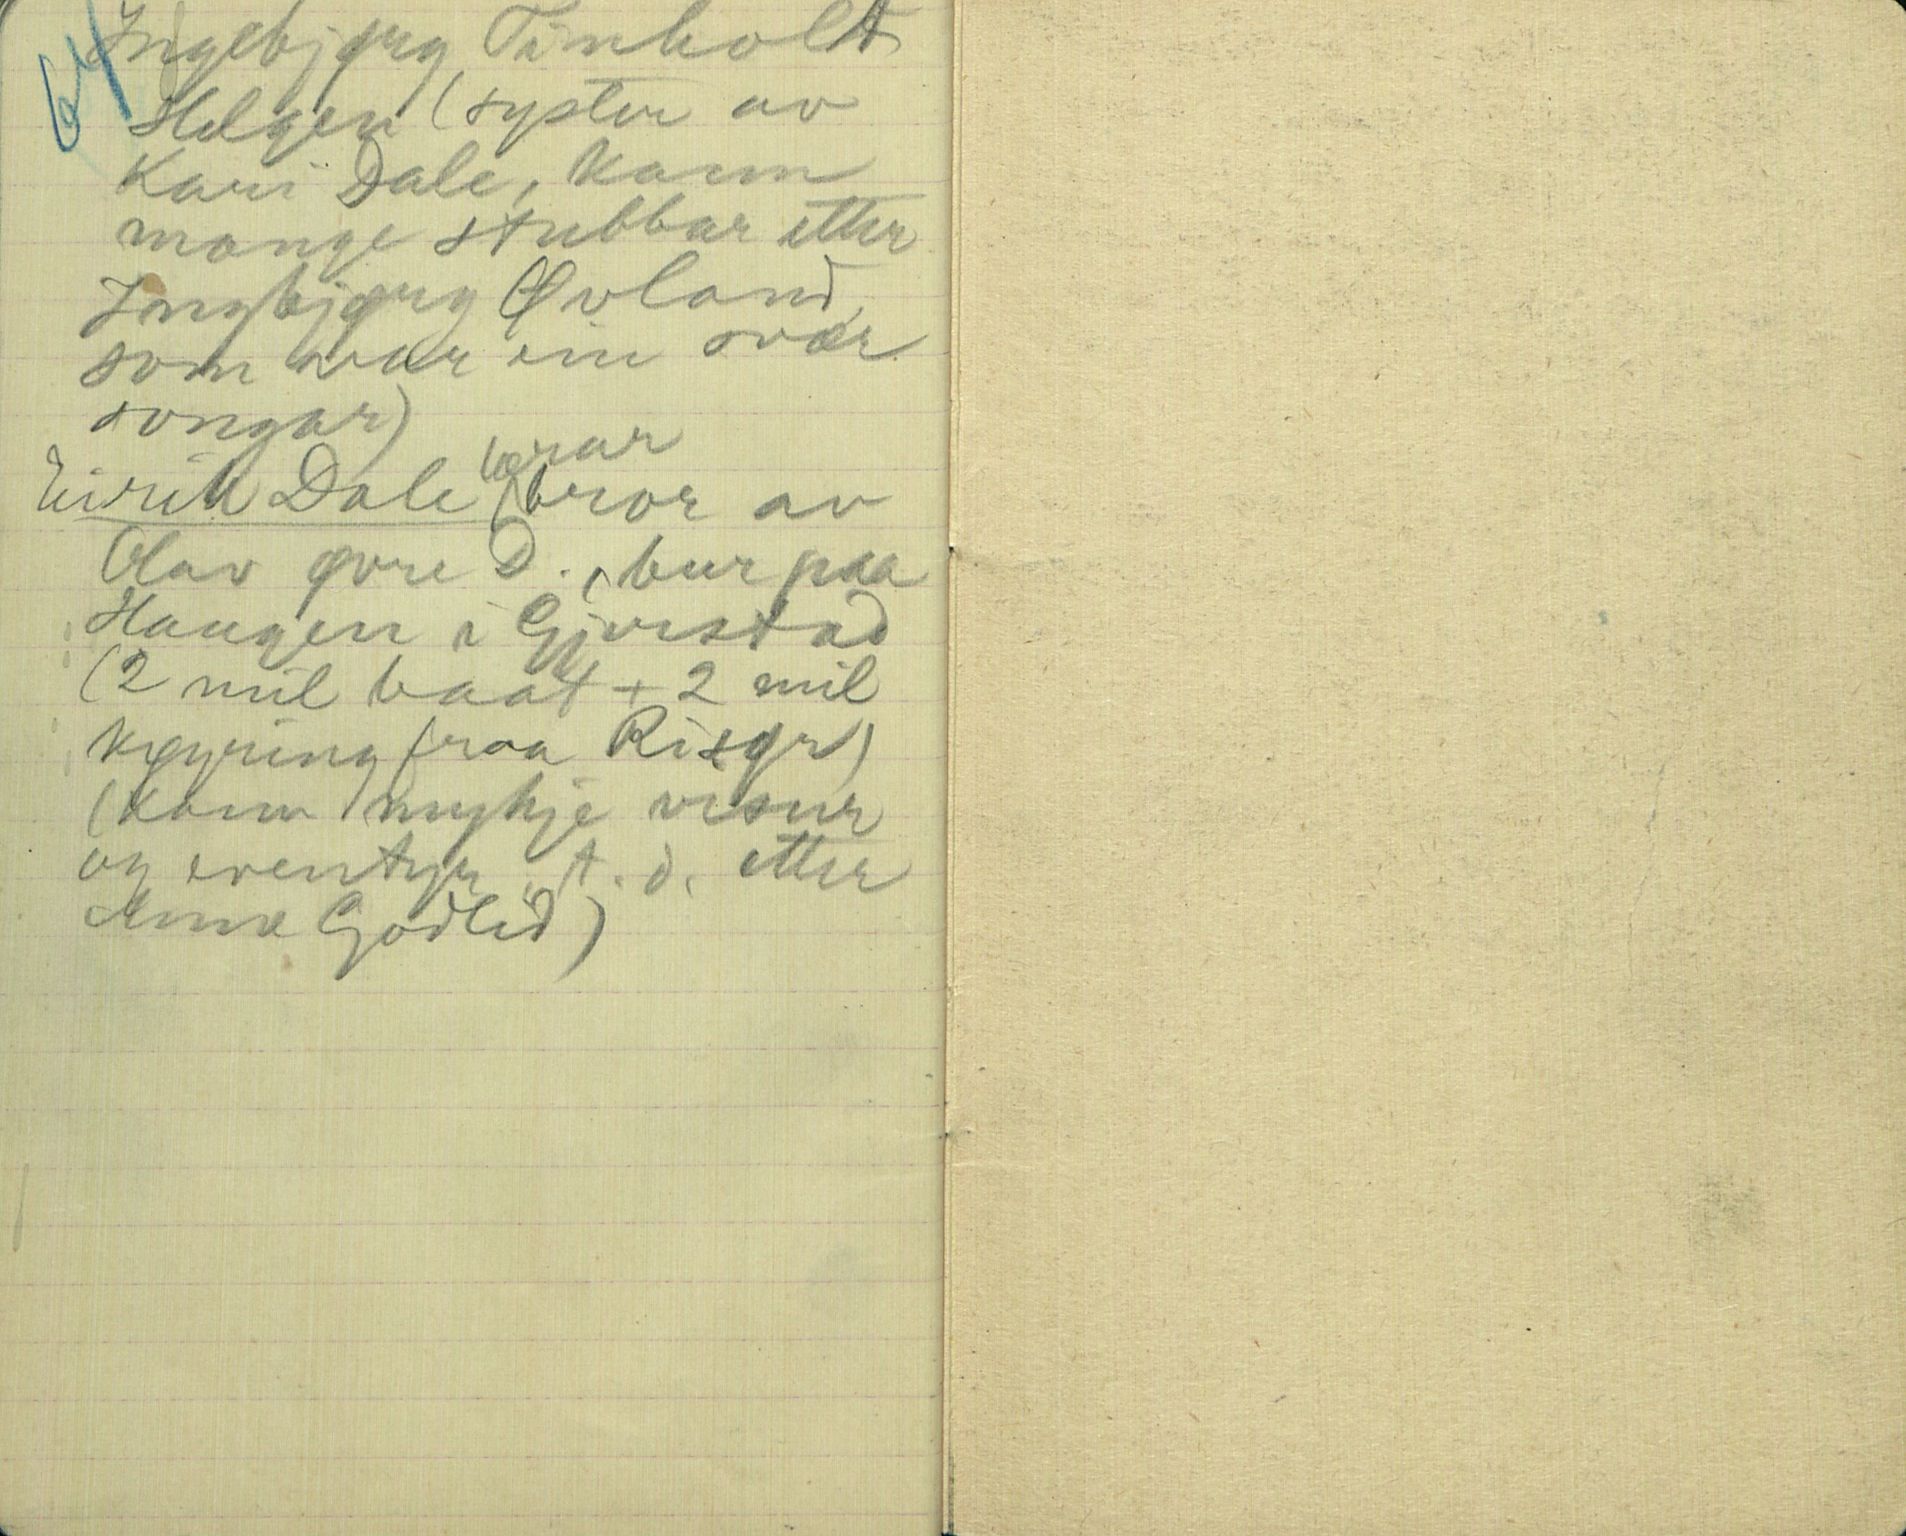 64
Ingebjørg Tinholt
Helgen (syster av
Kari Dale, kann
mange stubbar etter
Ingebjørg Øvland,
som var ein svær
songar)
lærar
Eirik Dale (bror av
Olav øvre D., bur paa
Haugen i Gjerstad
(2 mil baat + 2 mil
køyring fraa Risør)
(kann mykje visur
og eventyr t. d. etter
Anne Godlid)